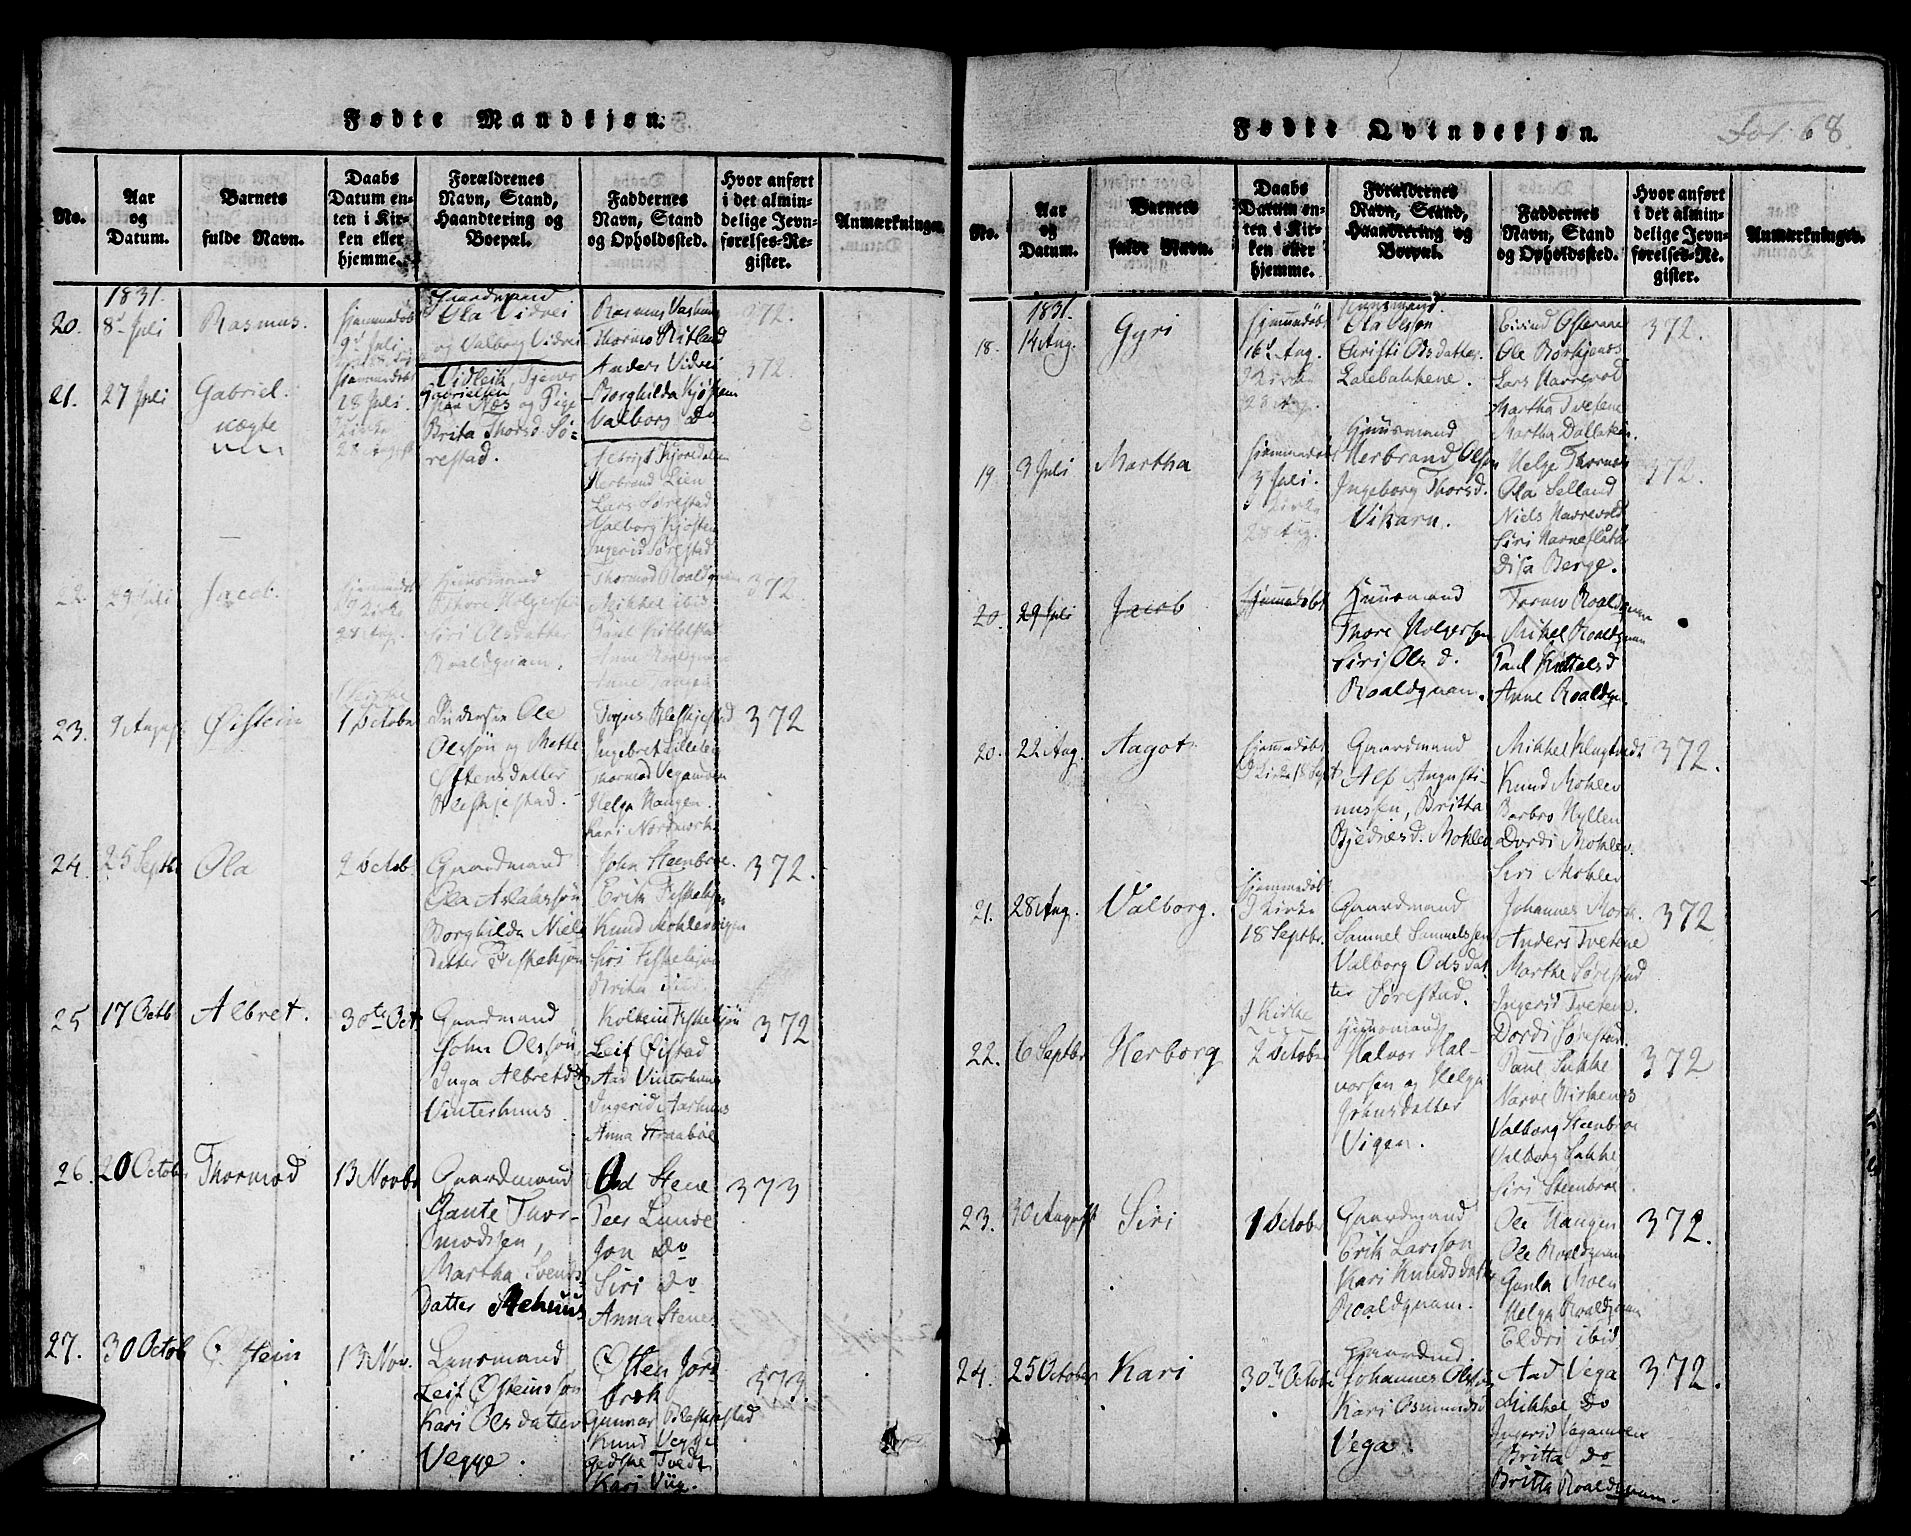 Fødte Mandkjøn.
No.
Aar
og
Datum.
Barnets
fulde Navn.
Daabs
Datum en-
ten i Kir-
ken eller
hjemme.
Forældrenes
Navn, Stand,
Haandtering og
Boepæl.
Faddernes
Navn, Stand
og Opholdssted.
Hvor anført
i det almin-
delige Jevn-
førelses-Re-
gister.
Anmærkninger.
1831.
20.
8d Juli
Rasmus.
hjemmedøbt
9d Juli
Gaardmand
Ola Vidvei
og Valborg Vidvei
Rasmus
Thormo Ritland
Anders Vidvei
Borghilda Kjøsten
Valborg Do
372.
21.
27 Juli
Gabriel.
uægte
hjemmedøbt
28 Juli.
Kirke
28 August
Vidleik Tjener
Gabrielsen
Næs og Pige
Brita Thorsd. Sø-
restad.
Herbrand Lien
Lars Sørestad
Valborg Kjøsten
Ingerid Sørestad
372.
22.
29 Juli
Jacob.
hjemmedøbt
Kirke
28 Aug.
Huusmand
Thore Holgersen
Siri Olsdatter
Roaldqvam.
Thormod Roaldqvam
Mikkel ibid
Paul Kittelstad
Anne Roaldqvam
Anne Tangen
372.
23.
9 August
Øistein
I Kirke
1 October
Ole
Olssøn og Mette
Østensdatter
Bleskjestad.
Bleskjestad
Ingebret Lillelid
Thormod Vegamoen
Helga Haugen.
Kari Nordmork
372
24.
25 Septbr
Ola
2 Octob.
Gaardmand
Ola Aslakssøn
Borghilda Niels
Datter Fiskekjøn
John Steenbroe.
Erik Fiskekjøn
Knud Mohlevvigen
Siri Fiskekjøn
Brita ibid.
372.
25
17 Octb
Albret.
30te Oct.
Gaardmand
John Olssøn,
Inga Albretdtr
Vinterhuus
Kolbein Fiskekjøn
Leif Øistad
Aad Vinterhuus
Ingerid Aarhuus
Anna Straabøe
372
26.
20 October
Thormod
13 Novbr
Gaardmand
Gaute Thor-
modssen,
Martha Svends-
Datter Stehuus
Aad Stene
Peer Lunde
Jon Do
Siri Do
Anna Stene
373
27.
30 Octob
Østein
13 Nov.
Lensmand
Leif Østeinssøn
Kari Olsdatter
Vegge.
Østen Jord
bræk
Gunnar Bleskjestad
Knud Vegge
Gedske Tvedt
Kari Viig.
373.
Fødte Qvindekjøn.
Fol. 68.
No.
Aar
og
Datum.
Barnets
fulde Navn.
Daabs
Datum en-
ten i Kir-
ken eller
hjemme.
Forældrenes
Navn, Stand,
Haandtering og
Boepæl.
Faddernes
Navn, Stand
og Opholdssted.
Hvor anført
i det almin-
delige Jevn-
førelses-Re-
gister.
Anmærkninger.
1831.
18.
14 Aug.
Gyri
hjemmedøbt
16d Aug.
I Kirke
28 Aug.
Huusmand.
Ola Olssøn
Christi Odsdatter
Lalebakkene.
Eivind Østenaae
Ole Borkjenes
Lars Havrevold
Martha Tvetene
Martha Dallaken.
372.
19.
3 Juli
Martha
hjemmedøbt
3 Juli.
I Kirke
28 Aug.
Huusmand
Herbrand Olssøn
Ingeborg Thorsd.
Vikarn.
Helge Thornæs
Ola Selland
Niels Havrevold
Siri Narneflåtå
Disa Berge.
372.
20.
29 Juli
Jacob
hjemmedøbt
Huusmand
Thore Holgersen
Siri Ols d.
Roaldqvam.
Tormo Roaldqvam
Mikel Roaldqvam
Paul Kittelsd
Anne Roaldqv.
20.
22 Aug.
Aagot.
hjemmedøbt
I Kirke 18 Sept
Gaardmand
Alf Augusti-
nussen, Britta
Bjednesd. Mohlev
Mikkel Klugtvedt
Knud Mohlev
Barbro Hyllen
Dordi Mohlev.
Siri Mohlev
372.
21.
28 Aug.
Valborg.
hjemmedøbt
I Kirke
18 Septbr.
Gaardmand
Samuel Samuelssen
Valborg Odsdat-
ter Sørestad.
Johannes Mork.
Anders Tvetene
Marthe Sørestad
Ingerid Tvetene.
Dordi Sørestad.
372
22.
6 Septbr
Herborg
I Kirke
2 October
Huusmand
Halvor Hal-
vorsen og Helga
Johnsdatter
Vigen.
Paul Sukke
Narve Birkenes
Valborg Steenbroe
Valborg Sukke
Siri Steenbroe.
372
23.
30 August
Siri
1 October
Gaardmand
Erik Larssøn
Kari Knudsdatter
Roaldqvam.
Ole Haugen
Ole Roaldqvam
Gunla Moen
Helga Roaldqvam
Eldri ibid
372.
24.
25 October
Kari
30te October
Gaardmd.
Johannes Olssøn,
Kari Osmundsd.
Vega.
Aad Vega
Mikkel Do
Ingerid Vegamoen
Britta Do
Britta Roaldqvam.
372.